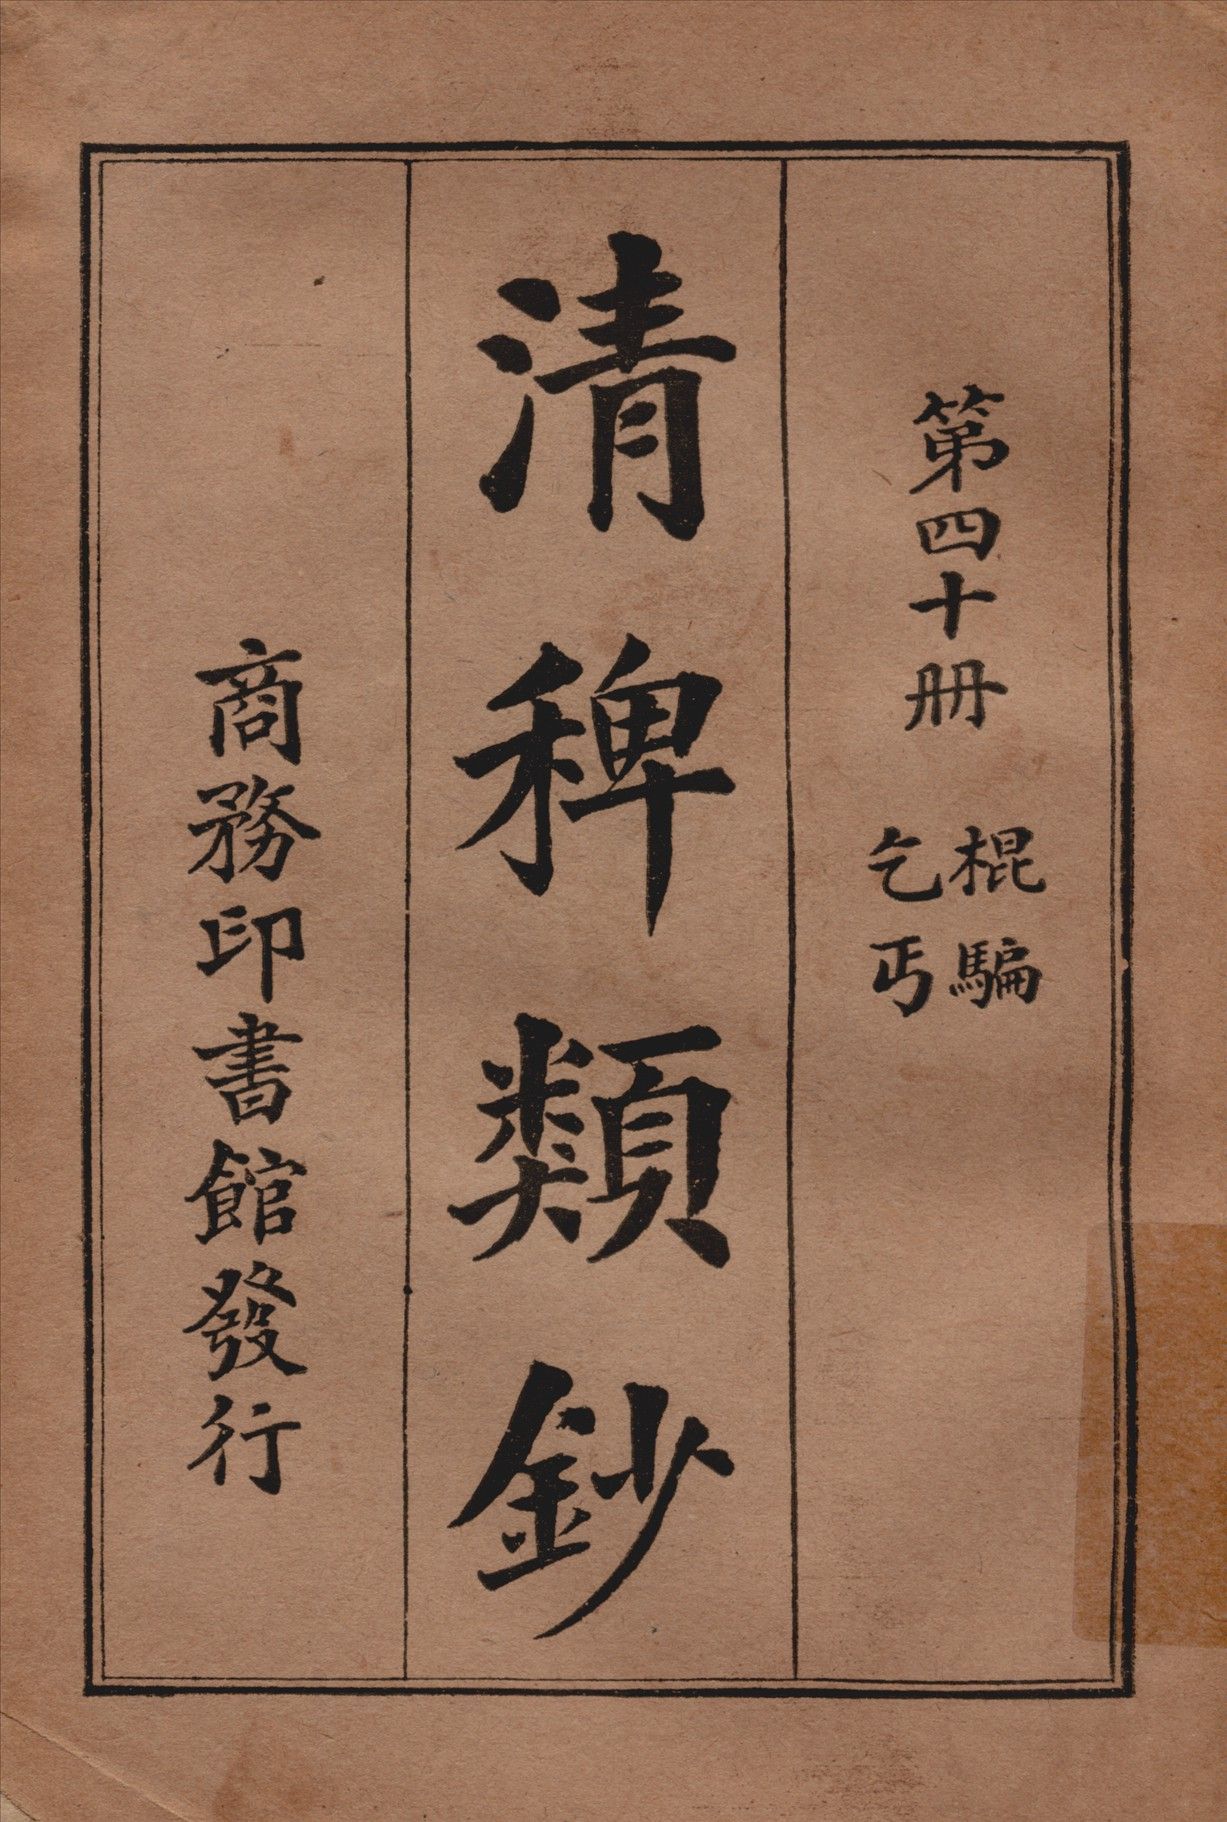 第四十冊
棍騙
乞丐
清稗類鈔
商務印書館發行